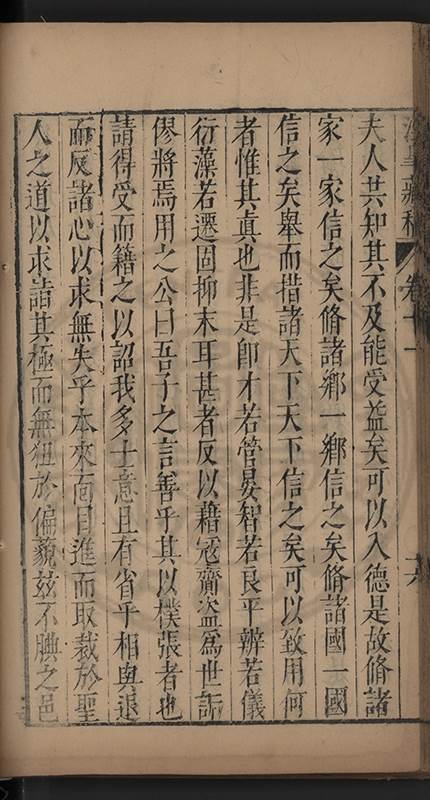 卷十一
夫人共知其不及能受益矣可以入德是故脩諸
家一家信之矣脩諸鄉一鄉信之矣脩諸國一國
信之矣舉而措諸天下天下信之矣可以致用何
者惟其眞也非是卽才若管晏智若良平辨若儀
衍藻若遷固抑末耳甚者反以藉寇齎盜爲世詬
僇將焉用之公曰吾子之言善乎其以樸張者也
請得受而籍之以詔我多士意且有省乎相與退
而反諸心以求無失乎本來面目進而取裁於聖
人之道以求詣其極而無狃於偏藐兹不腆之邑